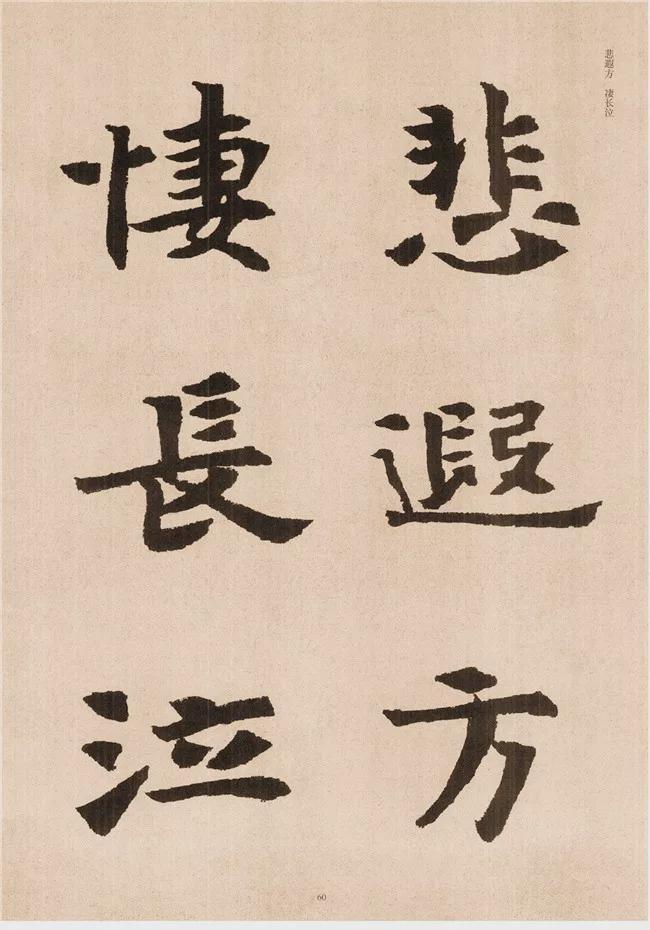 悲遐方　凄长泣
悲遐方
悽長泣
60